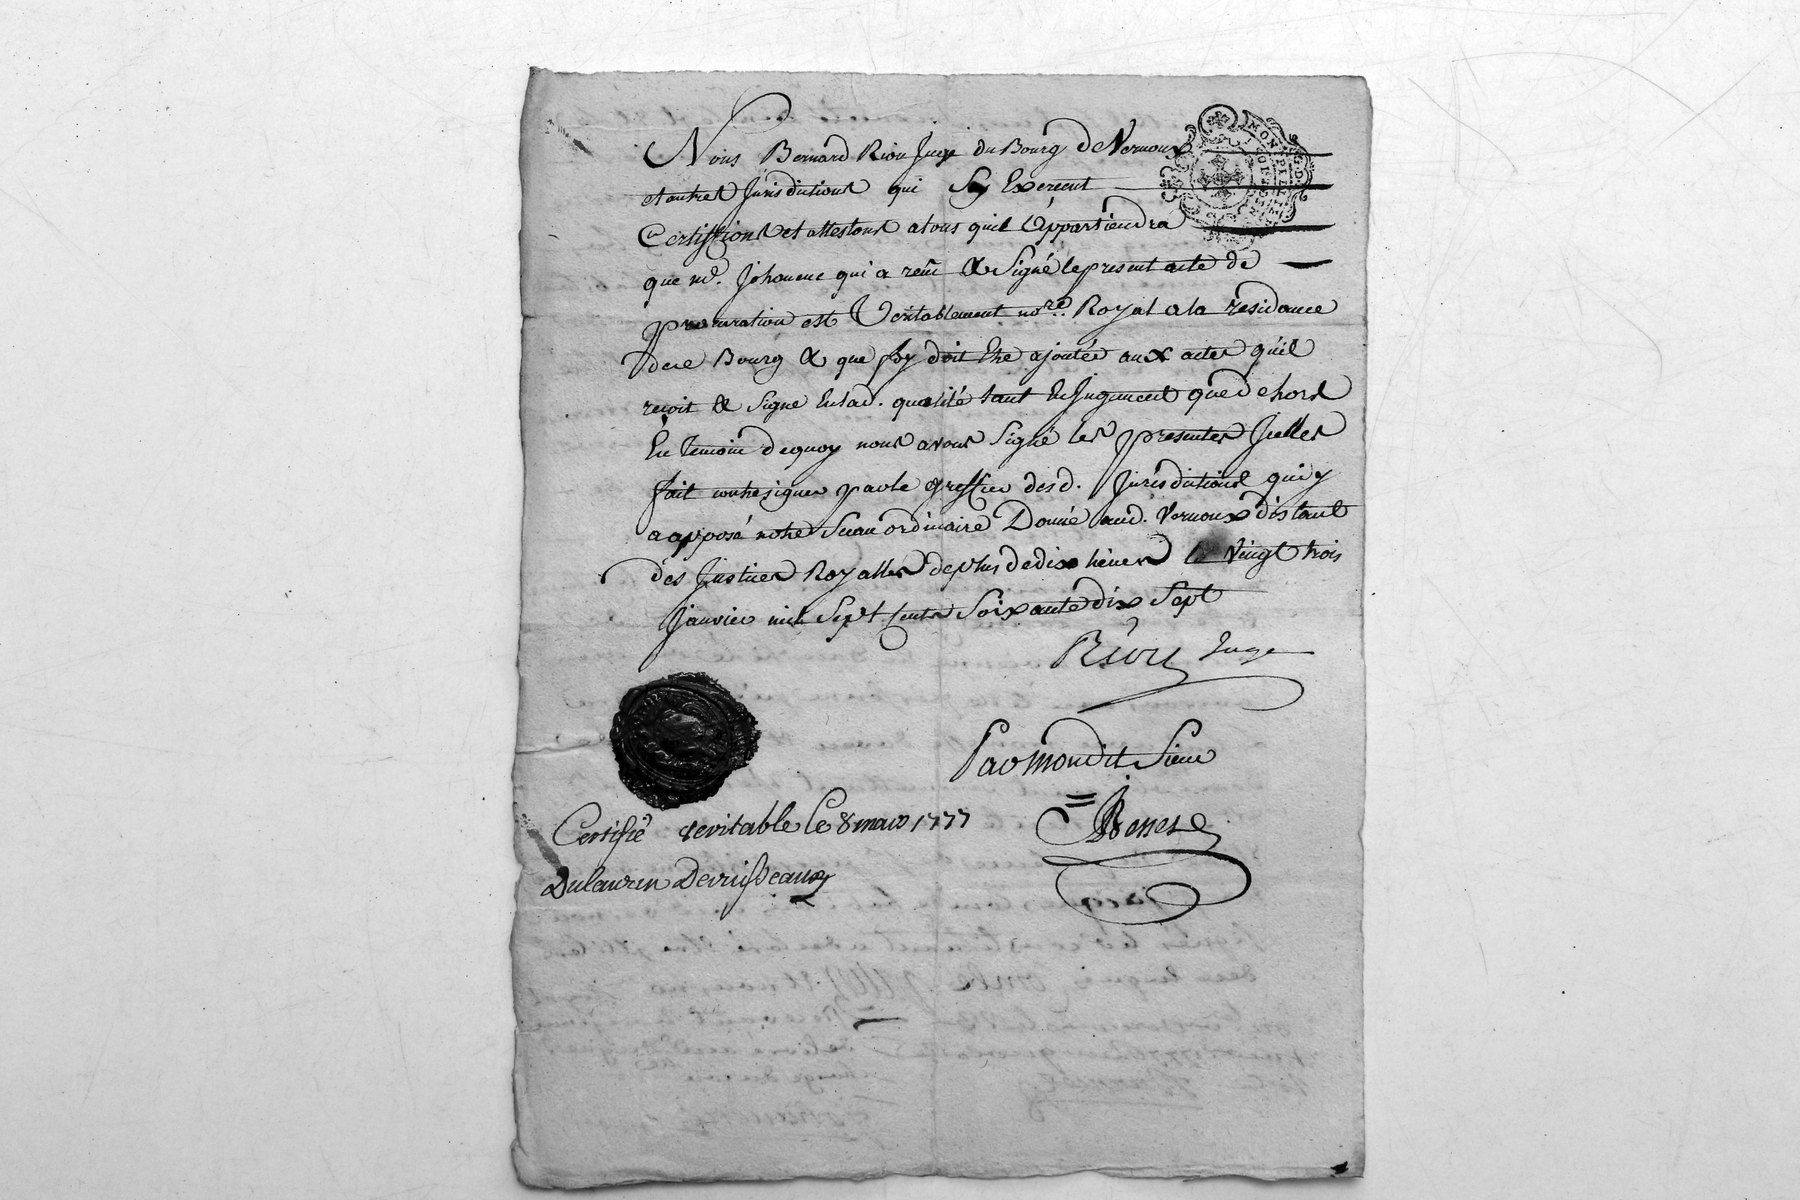 Nous Bernard Riou Juge du Bourg de Vernoux
et autres Jurisdictions qui Sy Exercent
Certiffions et attestons a tous quil Appartiendra
que me. Johanenc qui a reçu & Signé le present acte de
procuration est Veritablement nore. Royal a la residance
de ce Bourg & que foy doit Etre ajoutée aux actes qu'il
reçoit & Signe En lad. qualité tant En Jugement que dehors
En temoin dequoy nous avons Signé les presentes Icelles
fait contresigner par le greffier desd. Jurisdictions qui y
a apposé notre Sceau ordinaire Donné aud. Vernoux distant
des Justices Royalles de plus de dix lieues le Vingt trois
Janvier mil Sept cents Soixante dix Sept
Riou Juge
Par mondit Sieur
Certifié veritable le 8 mars 1777
Dulauren Deruisseaux